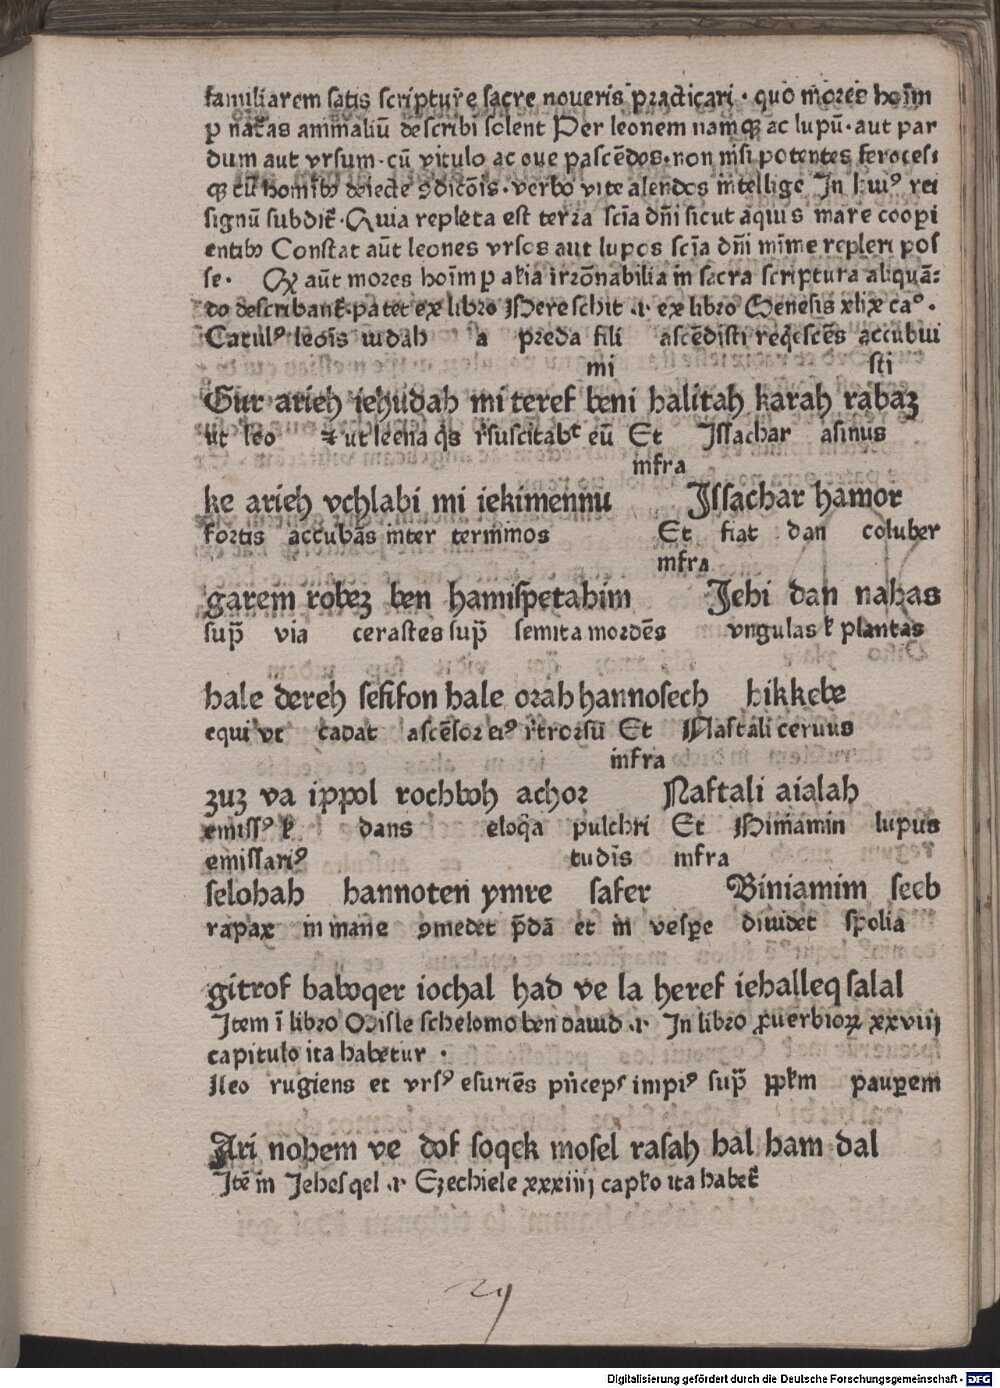 familiarem satis scripture sacre noveris practicari · quo mores hoīm
ꝑ nat̄as animaliū describi solent Per leonem namqꝫ ac lupū · aut par
dum aut vrsum · cū vitulo ac oue pascēdos · non nisi potentes feroces
qꝫ cū homībꝰ deiecte ꝯdicōis · verbo vite alendos intellige In huiꝰ rei
signū subdit̄ · Quia repleta est terra sciā dn̄i sicut aquis mare coopi
entibꝰ Constat aūt leones vrsos aut lupos sciā dn̄i mīme repleri pos
se · Qꝫ aūt mores hoīm ꝑ aīalia irrōnabilia in sacra scriptura aliquā⸗
do describant̄ · patet ex libro Bereschit .i. ex libro Genesis xlix caº ·
Catulꝰ leōis iudah a preda fili ascēdisti reqͥescēs accubui
mi sti
Gur arieh iehudah mi teref beni halitah karah rabaz
ut leo ⁊ ut leena qͥs r̄suscitabᵗ eū Et Issachar asinus
infra
ke arieh vchlabi mi iekimennu Issachar hamor
fortis accubās inter terminos Et fiat dan coluber
infra
garem robez ben hamispetahim Jehi dan nahas
sup̄ via cerastes sup̄ semita mordēs vngulas ł plantas
hale dereh sefifon hale orah hannosech hikkebe
equi vt cadat ascēsor eiꝰ r̄trorsū Et Naftali ceruus
infra
zuz va ippol rochboh achor Naftali aialah
emissꝰ ł dans eloqͥa pulchri Et Biniamin lupus
emissariꝰ tudīs infra
selohah hannoten ymre safer Biniamim seeb
rapax in mane ꝯmedet p̄dā et in vesꝑe diuidet spolia
gitrof baboqer iochal had ve la heref iehalleq salal
Item ī libro Misle schelomo ben dauid .i. In libro ꝓuerbioꝝ xxviij
capitulo ita habetur ·
Leo rugiens et vrsꝰ esuriēs pͥncepˢ impiꝰ sup̄ ppłm pauꝑem
Ari nohem ve dof soqek mosel rasah hal ham dal
Itē in Jehesqel .i. Ezechiele xxxiiij capło ita habet̄
29
Digitalisierung gefördert durch die Deutsche Forschungsgemeinschaft - DFG